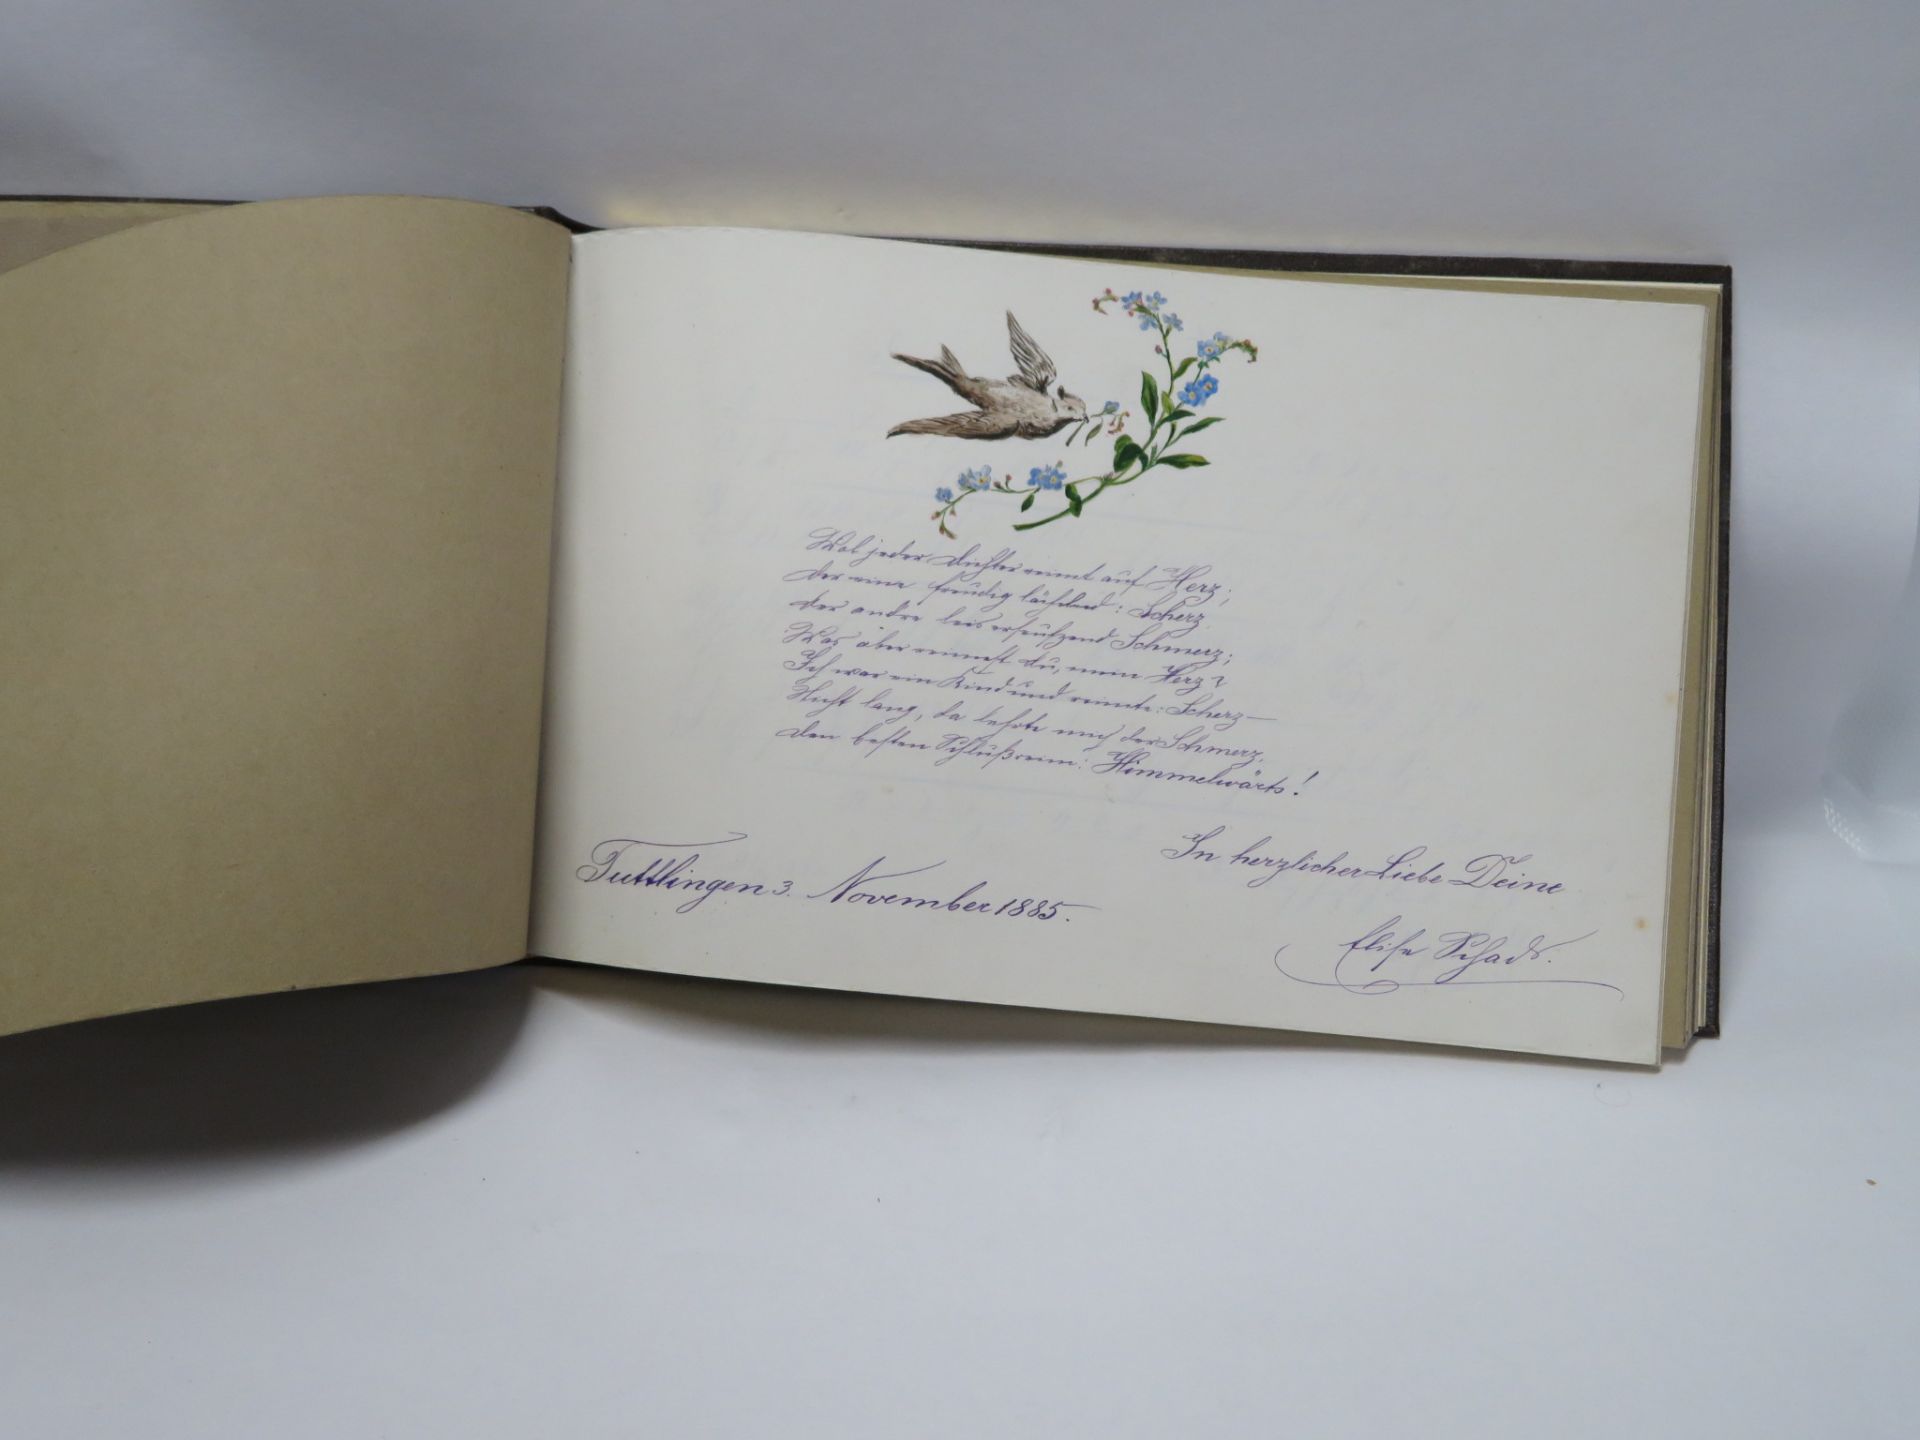 Wol jeder Dichter reimt auf Herz;
Der eine freudig lächelnd: Scherz
Der andre leis erseufzend Schmerz;
Was aber reimest Du, mein Herz?
Ich war ein Kind und reimte: Scherz—
Nicht lang, da lehrte mich der Schmerz,
Den besten Schlußreim: Himmelwärts!
In herzlicher Liebe Deine
Tuttlingen 3. November 1885.
Elise Schad.